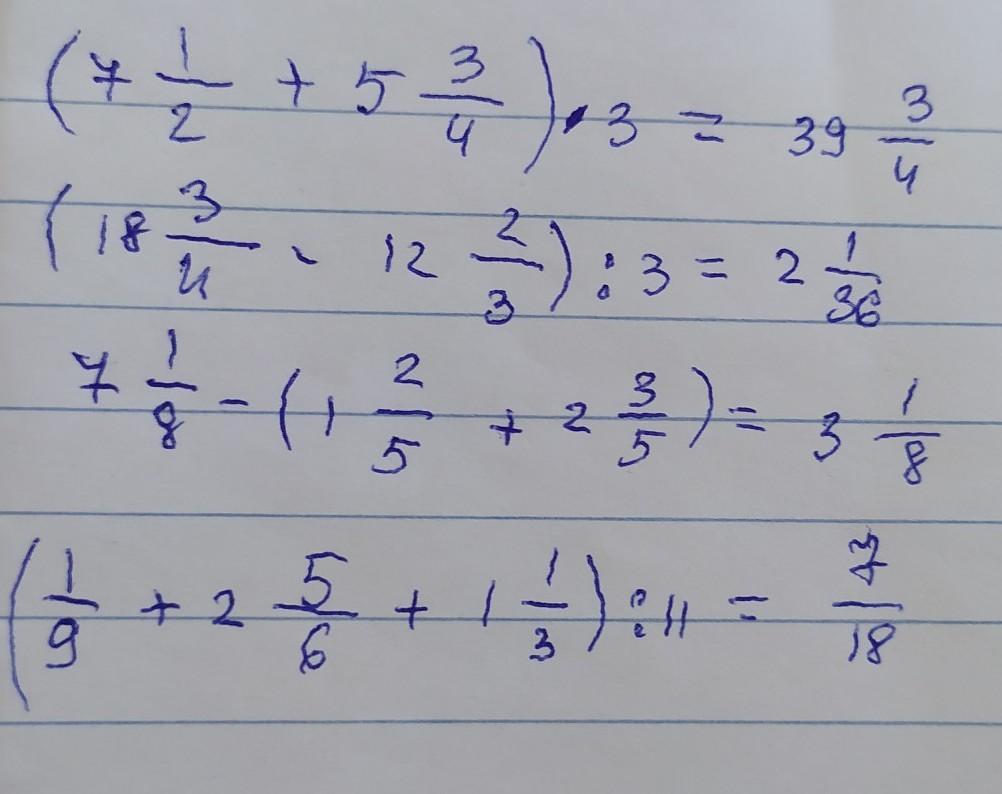 (7 1/2 + 5 3/4) · 3 = 39 3/4
(18 3/4 - 12 2/3) : 3 = 2 1/36
7 1/8 - (1 2/5 + 2 3/5) = 3 1/8
(1/9 + 2 5/6 + 1 1/3) : 11 = 7/18